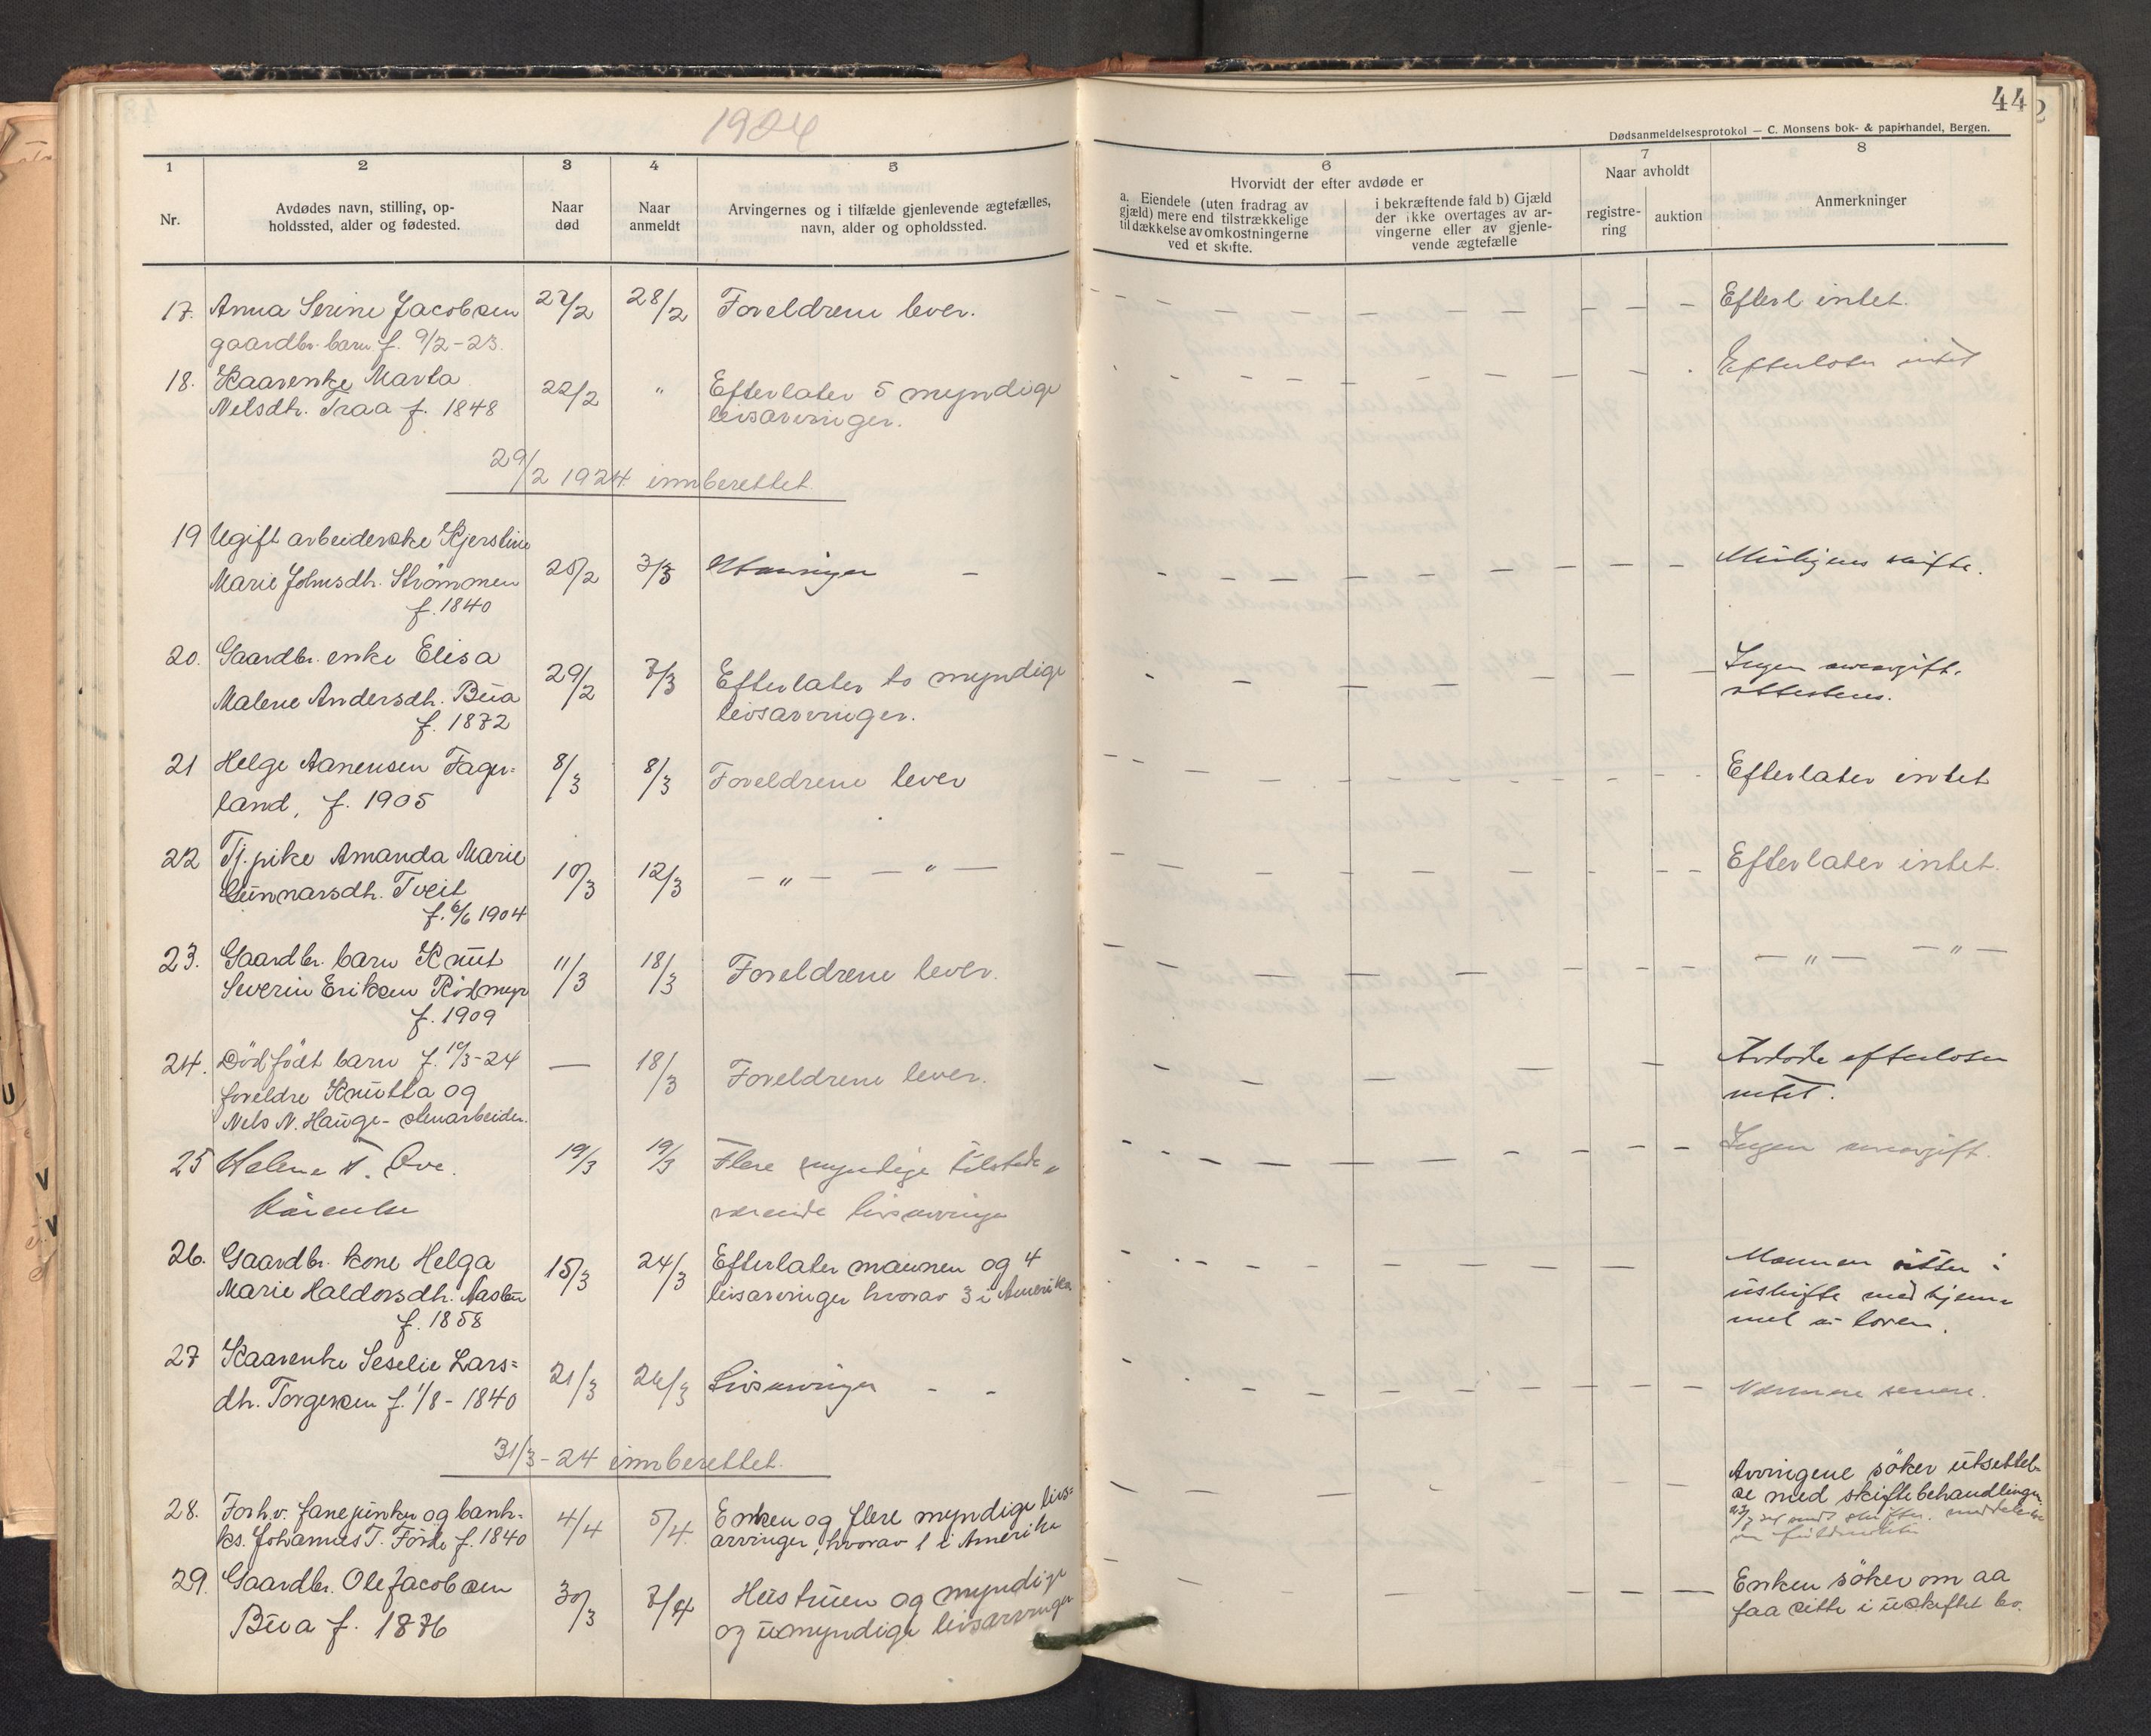 1924
44
Dødsanmeldelsesprotokol — C. Monsens bok- & papirhandel, Bergen.
1 2 3 4 5 6 7 8
Nr.
Avdødes navn, stilling, op-
holdssted, alder og fødested.
Naar
død
Naar
anmeldt
Arvingernes og i tilfælde gjenlevende ægtefælles,
navn, alder og opholdssted.
Hvorvidt der efter avdøde er
a. Eiendele (uten fradrag av
gjæld) mere end tilstrækkelige
til dækkelse av omkostningerne
ved et skifte.
i bekræftende fald b) Gjæld
der ikke overtages av ar-
vingerne eller av gjenle-
vende ægtefælle
Naar avholdt
registre-
ring
auktion
Anmerkninger
17. Anna Serine Jacobsen 27/2 28/2 Foreldrene lever. Efterl intet.
gaardbr. barn f. 9/2-23.
18. Kaarenke Marta 22/2 " Efterlater 5 myndige Efterlater intet
Nelsdtr. Traa f. 1848 livsarvinger.
29/2 1924 innberettet
19 Ugift arbeiderske Kjerstine
Marie Johnsdtr. Strömmen 25/2 3/3 Utarvinger — skifte.
f. 1840
20. Gaardbr. enke Elisa 29/2 7/3 Efterlater to myndige Ingen arveavgift.
Malene Andersdtr. Büa livsarvinger. attesteres.
f. 1872
21 Helge Aanensen Fager= 8/3 8/3 Foreldrene lever Efterlater intet
land, f. 1905
22 Tj. pike Amanda Marie 10/3 12/3 — " — — " — Efterlater intet.
Gunnarsdtr. Tveit
f. 6/6 1904
23. Gaardbr. barn Knut 11/3 18/3 Foreldrene lever. — " — — " —
Severin Eriksen Rödmyr
f. 1909
24. Dödfödt barn f. 10/3-24 — 18/3 Foreldrene lever. Avdöde efterlater
foreldre Knutta og intet.
Nels N. Hauge - stenarbeider.
25 Helene T. Ove. 19/3 19/3 Flere myndige tilstede= Ingen arveavgift.
Kårenke værende livsarvinger
26. Gaardbr. kone Helga 15/3 24/3 Efterlater mannen og 4 Mannen sitter i
Marie Haldorsdtr. livsarvinger hvorav 3 i Amerika uskifte med hjem-
f. 1858 mel i loven.
27 Kaarenke Seselie Lars= 21/3 26/3 Livsarvinger - - Nærmere senere.
dtr. Torgersen f. 1/8 - 1840
31/3-24 innberettet.
28. Forhv. fanejunker og bank- 4/4 5/4. Enken og flere myndige livs= Arvingene söker utsettel-
ks. Johannes T. Förde f. 1840 arvinger, hvorav 1 i Amerika se med skiftebehandlingen
29. Gaardbr. Ole Jacobsen 30/3 7/4 Hustruen og myndige Enken söker om aa
Büa f. 1876 og umyndige livsarvinger faa sitte i uskiftet bo.